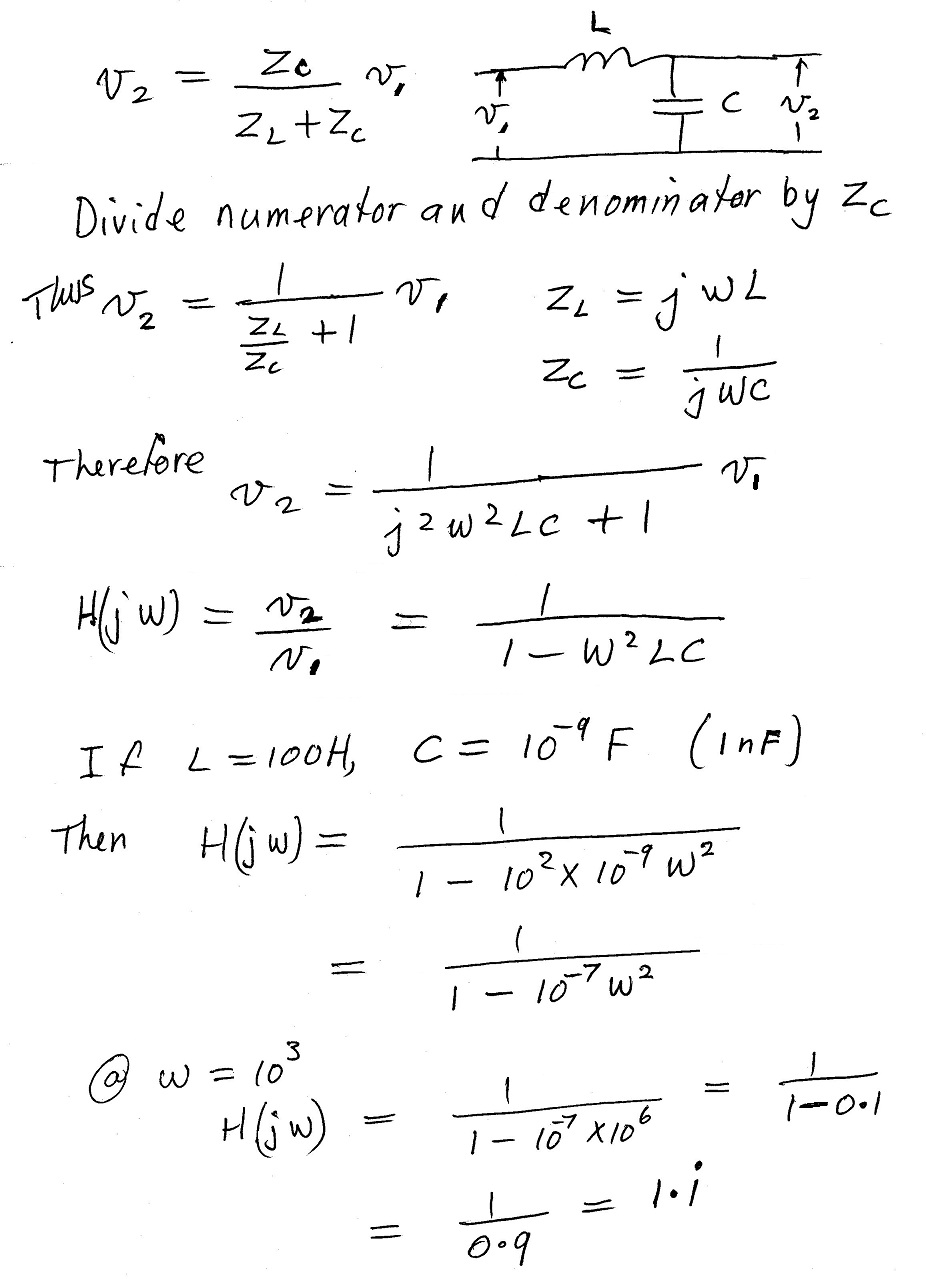 v₂ = Zc / (Z_L + Zc) v₁
L
v₁
C
v₂
Divide numerator and denominator by Zc
Thus v₂ = 1 / (Z_L/Zc + 1) v₁
Z_L = jωL
Zc = 1 / jωC
Therefore v₂ = 1 / (j²ω²LC + 1) v₁
H(jω) = v₂/v₁ = 1 / (1 − ω²LC)
If L = 100H, C = 10⁻⁹ F (1nF)
Then H(jω) = 1 / (1 − 10² × 10⁻⁹ ω²)
= 1 / (1 − 10⁻⁷ω²)
@ ω = 10³
H(jω) = 1 / (1 − 10⁻⁷ × 10⁶) = 1 / (1 − 0·1)
= 1 / 0·9 = 1·1̇